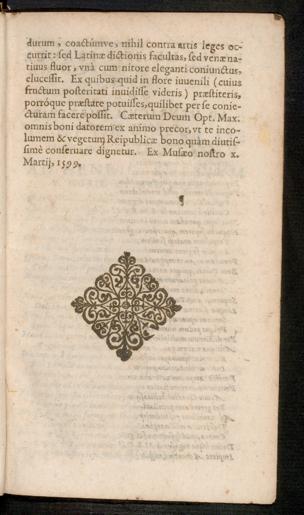 durum, coactúmve, nihil contra artis leges oc-
currit: sed Latinæ dictionis facultas, sed venæ na-
tiuus fluor, vnà cum nitore eleganti coniunctus,
elucessit. Ex quibus quid in flore iuuenili (cuius
fructum posteritati inuidisse videris) præstiteris,
porróque præstare potuisses, quilibet per se conie-
cturam facere possit. Cæterum Deum Opt. Max.
omnis boni datorem ex animo precor, vt te inco-
lumem & vegetum Reipublicæ bono quàm diutis-
simè conseruare dignetur. Ex Musæo nostro x.
Martij, 1599.